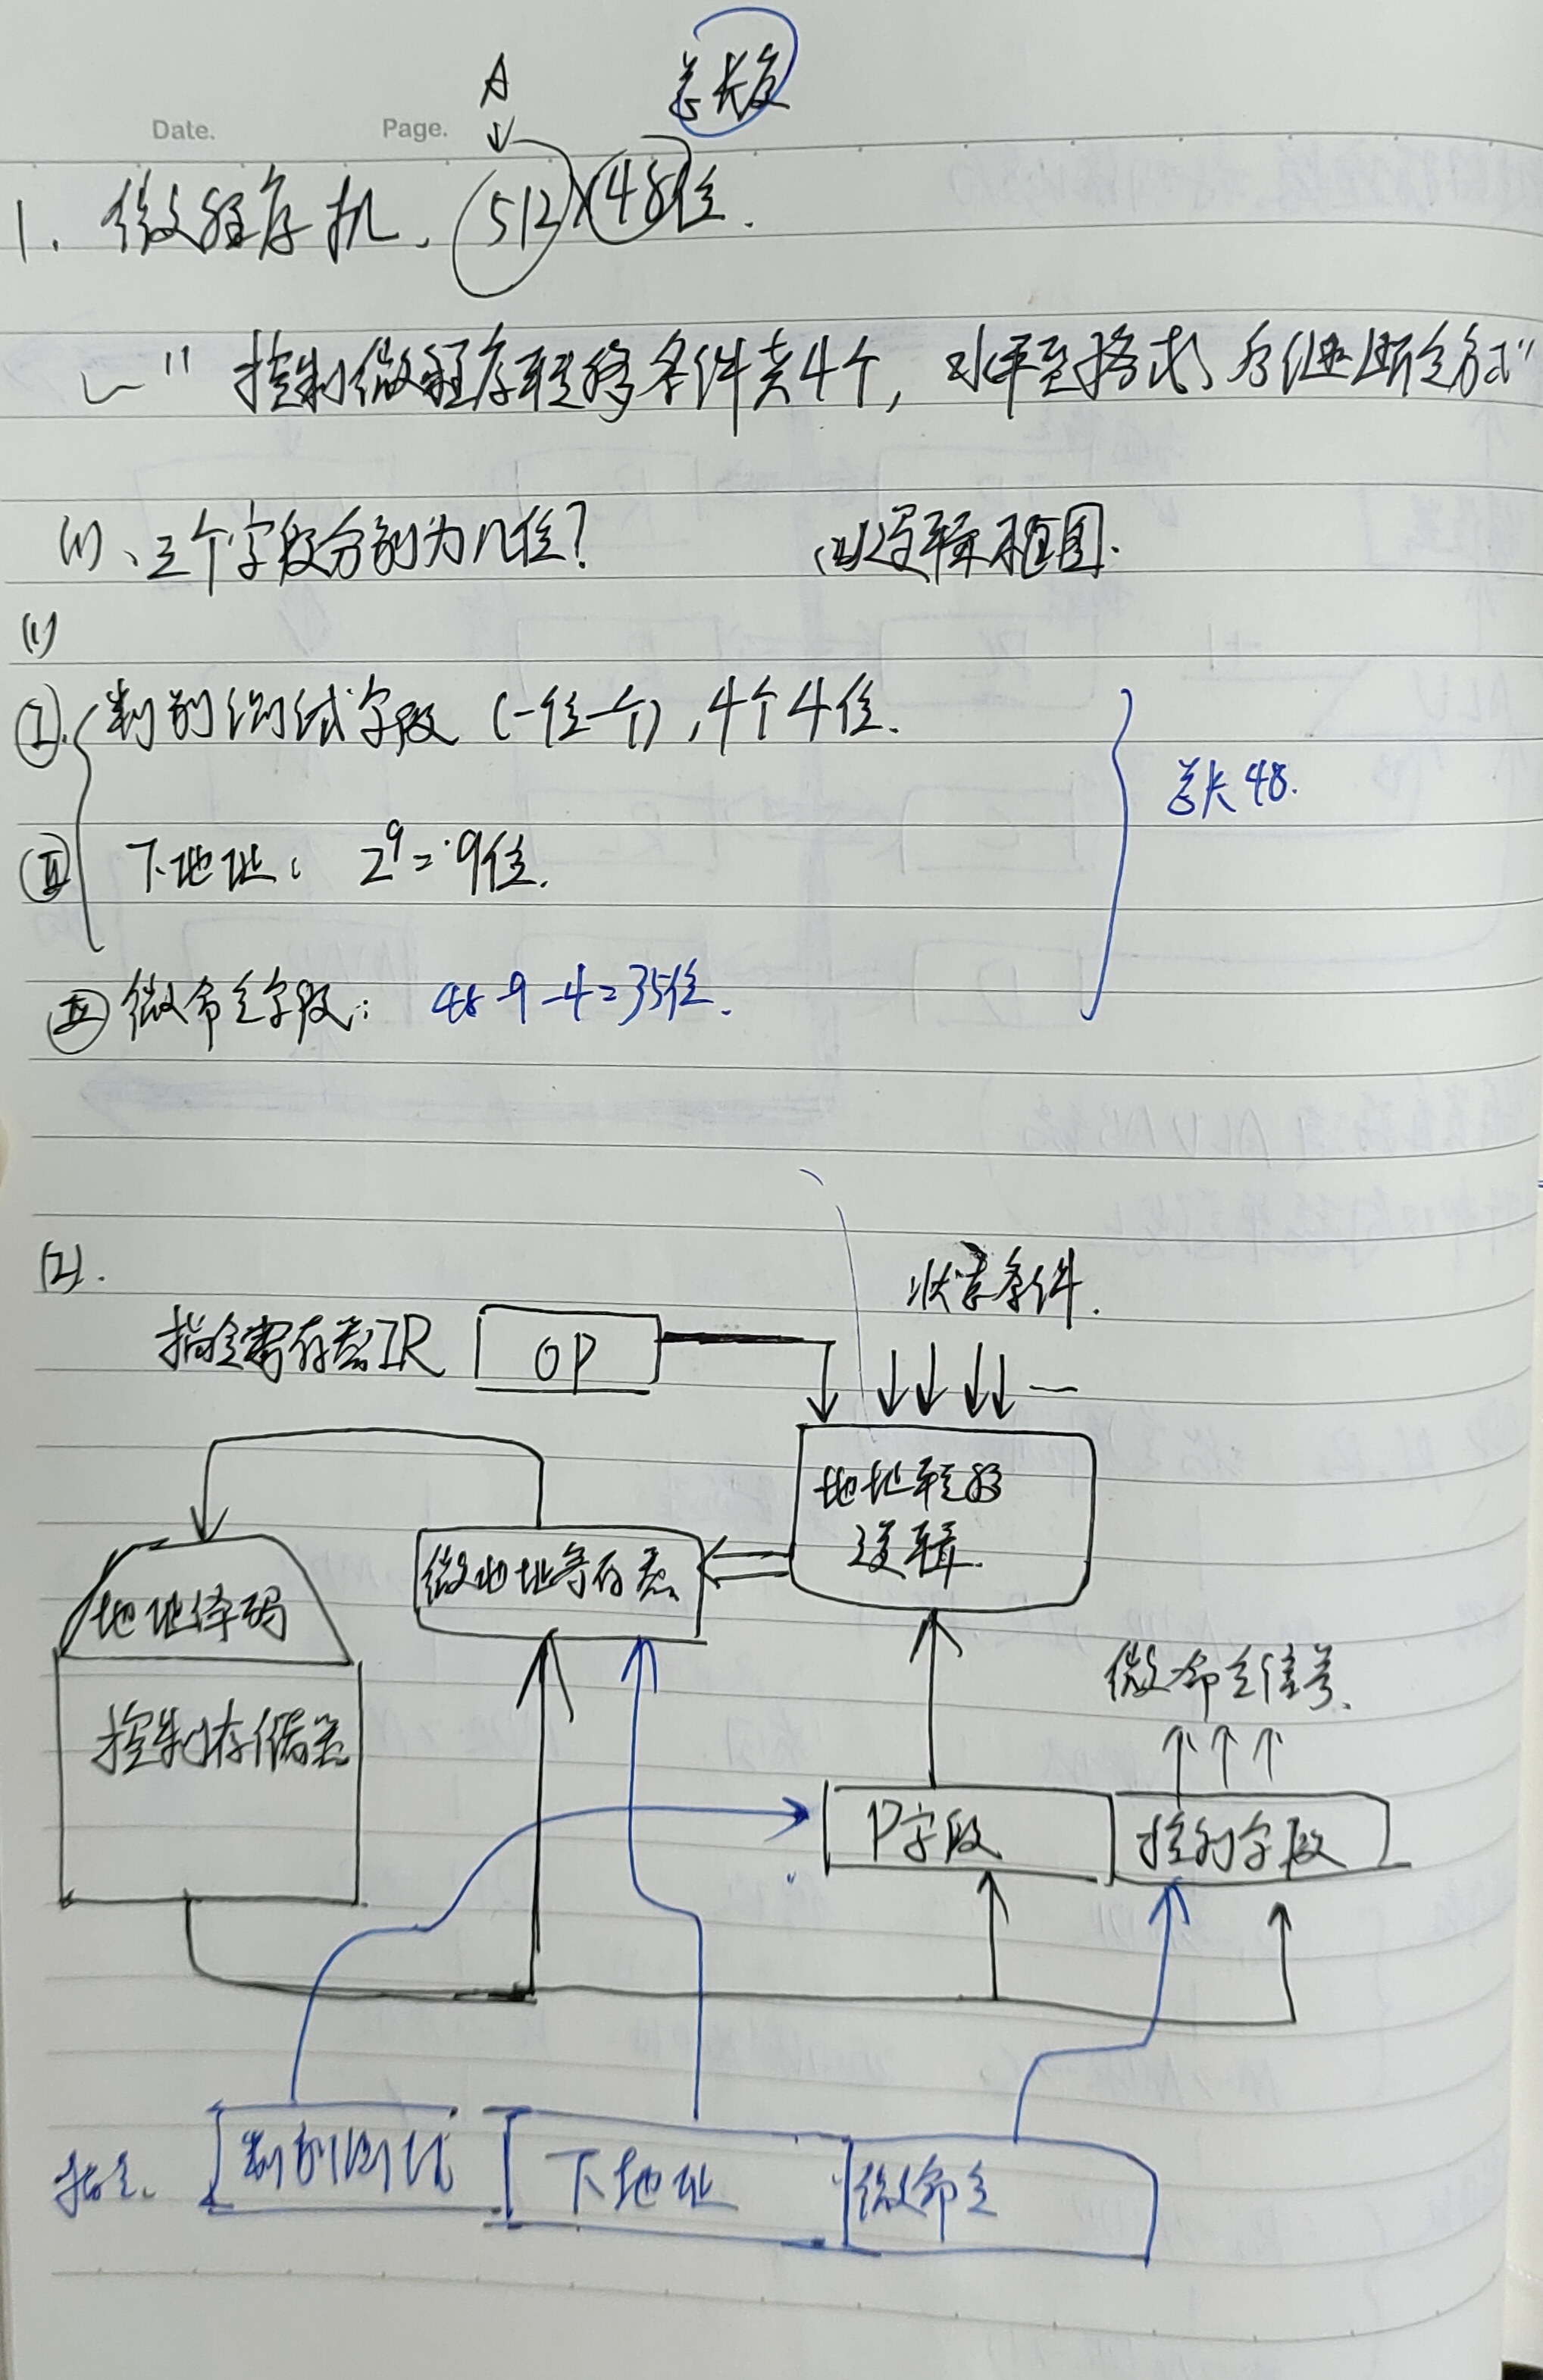 A
总长度
Date. Page.
1. 微程序机. 512×48位.
"控制微程序转移条件共4个, 水平型格式, 后继断定方式"
(1)、三个字段分别为几位? (2)逻辑框图.
(1)
① 判别测试字段 (一位一个), 4个4位.
总长48.
② 下地址: 2⁹=9位.
③ 微命令字段: 48-9-4=35位.
(2).
状态条件.
指令寄存器IR OP
地址转移
逻辑.
微地址寄存器
地址译码
微命令信号.
控制存储器
P字段 控制字段
指令. 判别测试 下地址 微命令